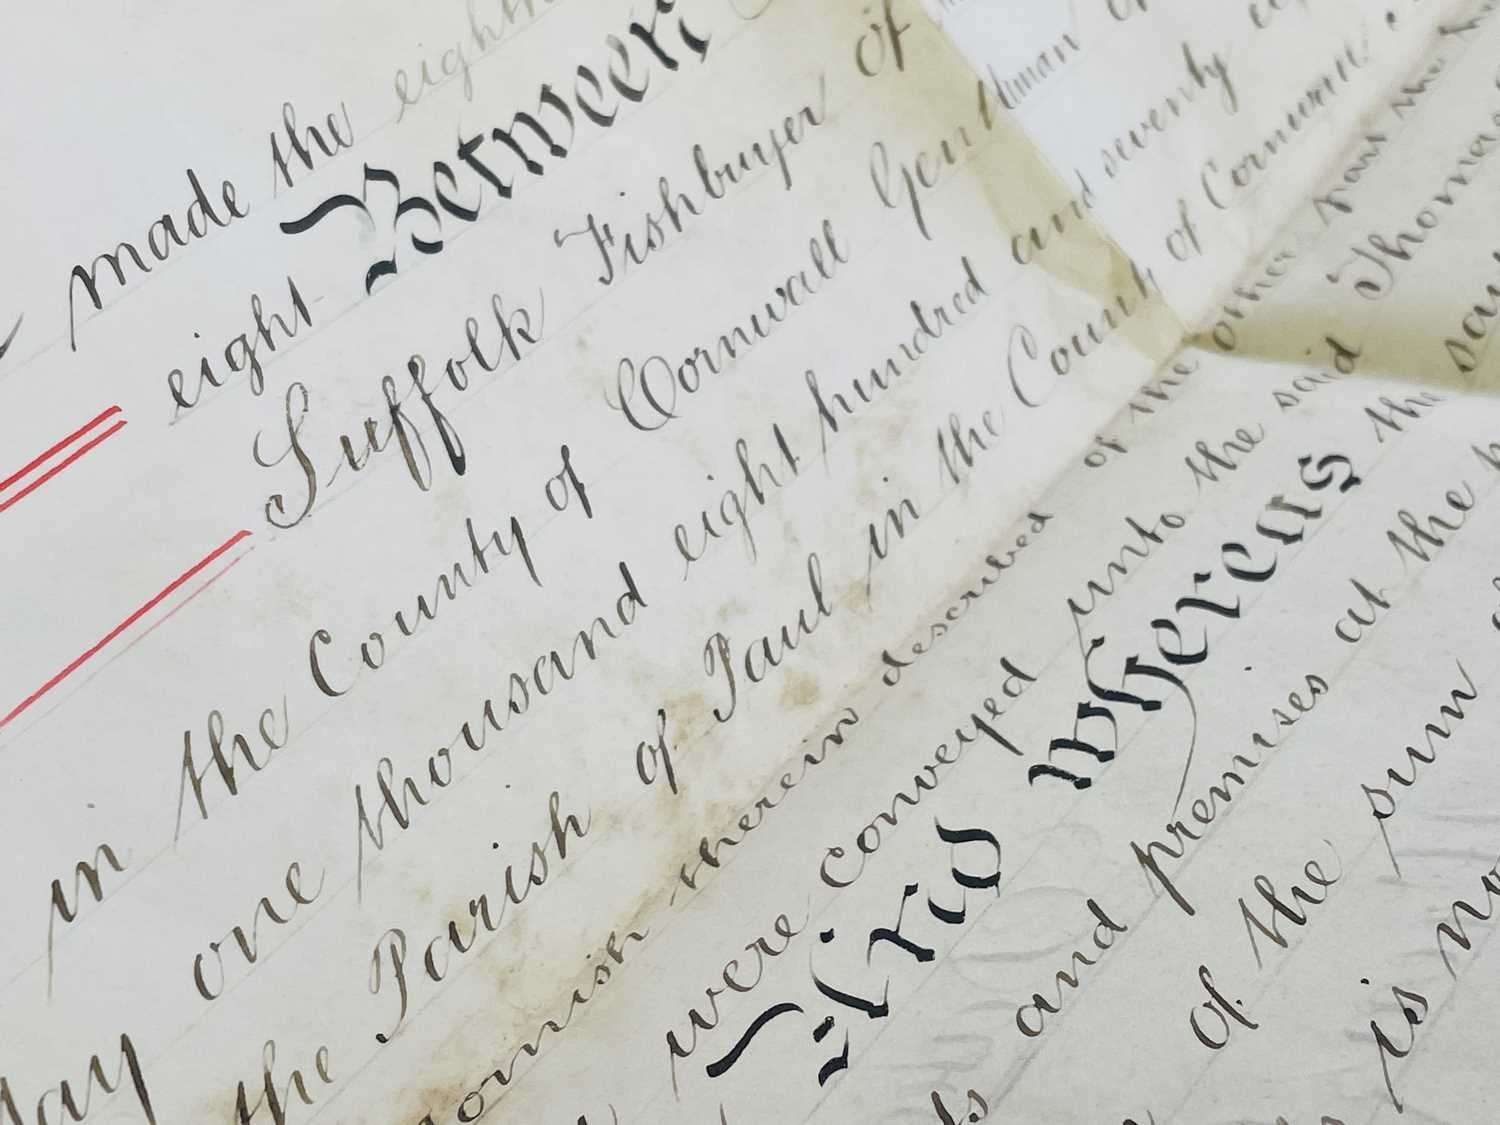 made the eighth
eight Between
Suffolk Fishbuyer of
in the County of Cornwall Gentleman
one thousand eight hundred and seventy
day the Parish of Paul in the County of Cornwall
Cornish therein described of the other part the
were conveyed unto the said Thomas
And whereas the said
and premises at the
of the sum
is